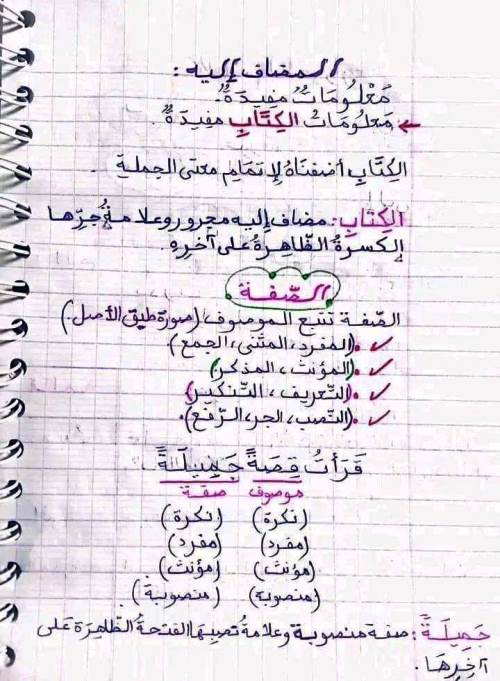 المضاف إليه :
مَعْلُومَاتٌ مفِيدَةٌ.
مَعلُومَاتُ الكِتَابِ مفِيدَةٌ.
الكِتَابِ أضفنَاهُ لإتمَامِ معنَى الجملةِ.
الكِتَابِ: مضاف إليه مجرور وعلامةُ جرِّها
الكسرَةُ الظَّاهِرَةُ على آخرِهِ.
الصِّفة
الصِّفة تتبع الموصوف (صورة طبق الأصل.)
(المفرد، المثنى، الجمع)
(المؤنث، المذكر)
(التّعريف، التّنكير)
(النّصب، الجر، الرّفع).
قَرَأتُ قِصَةً جَمِيلَةً.
موصوف صفة
(نكرة) (نكرة)
(مفرد) (مفرد)
(مؤنث) (مؤنث)
(منصوبة) (منصوبة)
جَمِيلَةً: صفة منصوبة وعلامةُ نصبِهَا الفتحةُ الظّاهِرَة عَلى
آخِرِهَا.